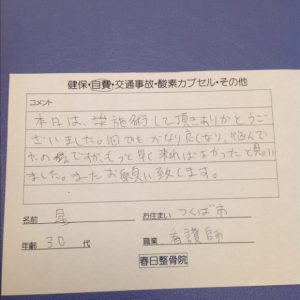 健保・自費・交通事故・酸素カプセル・その他
コメント
本日は、施術して頂きありがとうご
ざいました。1回でもかなり良くなり、悩んで
たの ですが、もっと早く来ればよかったと思い
ました。またお願い致します。
名前
お住まい つくば市
年齢 30 代
職業 看護師
春日整骨院